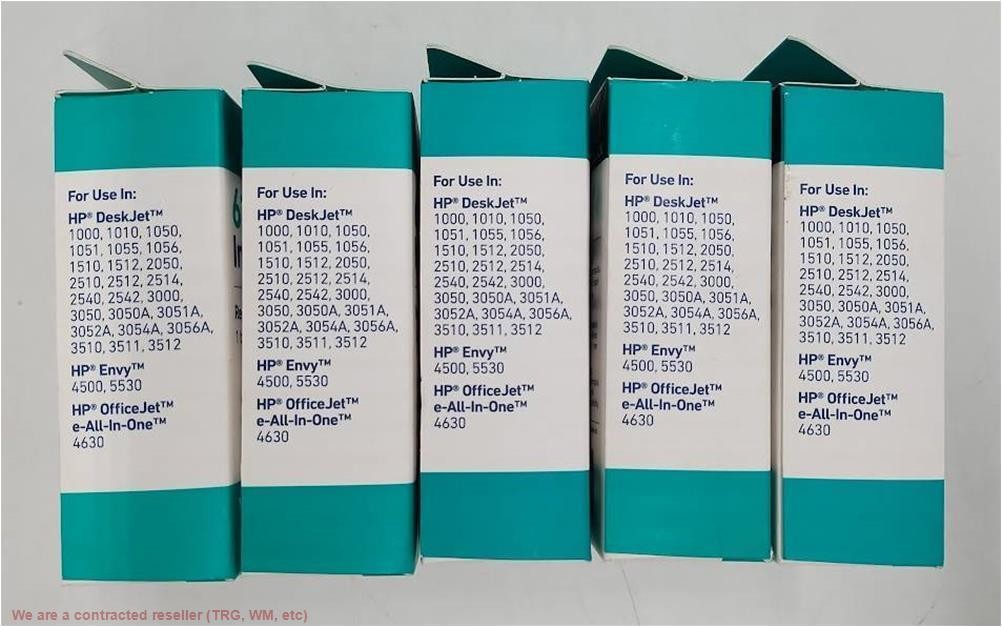 For Use In:
HP® DeskJet™
1000, 1010, 1050,
1051, 1055, 1056,
1510, 1512, 2050,
2510, 2512, 2514,
2540, 2542, 3000,
3050, 3050A, 3051A,
3052A, 3054A, 3056A,
3510, 3511, 3512
HP® Envy™
4500, 5530
HP® OfficeJet™
e-All-In-One™
4630
For Use In:
HP® DeskJet™
1000, 1010, 1050,
1051, 1055, 1056,
1510, 1512, 2050,
2510, 2512, 2514,
2540, 2542, 3000,
3050, 3050A, 3051A,
3052A, 3054A, 3056A,
3510, 3511, 3512
HP® Envy™
4500, 5530
HP® OfficeJet™
e-All-In-One™
4630
For Use In:
HP® DeskJet™
1000, 1010, 1050,
1051, 1055, 1056,
1510, 1512, 2050,
2510, 2512, 2514,
2540, 2542, 3000,
3050, 3050A, 3051A,
3052A, 3054A, 3056A,
3510, 3511, 3512
HP® Envy™
4500, 5530
HP® OfficeJet™
e-All-In-One™
4630
For Use In:
HP® DeskJet™
1000, 1010, 1050,
1051, 1055, 1056,
1510, 1512, 2050,
2510, 2512, 2514,
2540, 2542, 3000,
3050, 3050A, 3051A,
3052A, 3054A, 3056A,
3510, 3511, 3512
HP® Envy™
4500, 5530
HP® OfficeJet™
e-All-In-One™
4630
For Use In:
HP® DeskJet™
1000, 1010, 1050,
1051, 1055, 1056,
1510, 1512, 2050,
2510, 2512, 2514,
2540, 2542, 3000,
3050, 3050A, 3051A,
3052A, 3054A, 3056A,
3510, 3511, 3512
HP® Envy™
4500, 5530
HP® OfficeJet™
e-All-In-One™
4630
We are a contracted reseller (TRG, WM, etc)